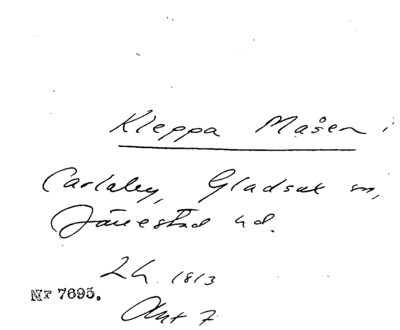 Kleppa Måsen i
Carlaby, Gladsax sn,
Järrestad hd.
LH 1813
Nr 7695.
Akt 7